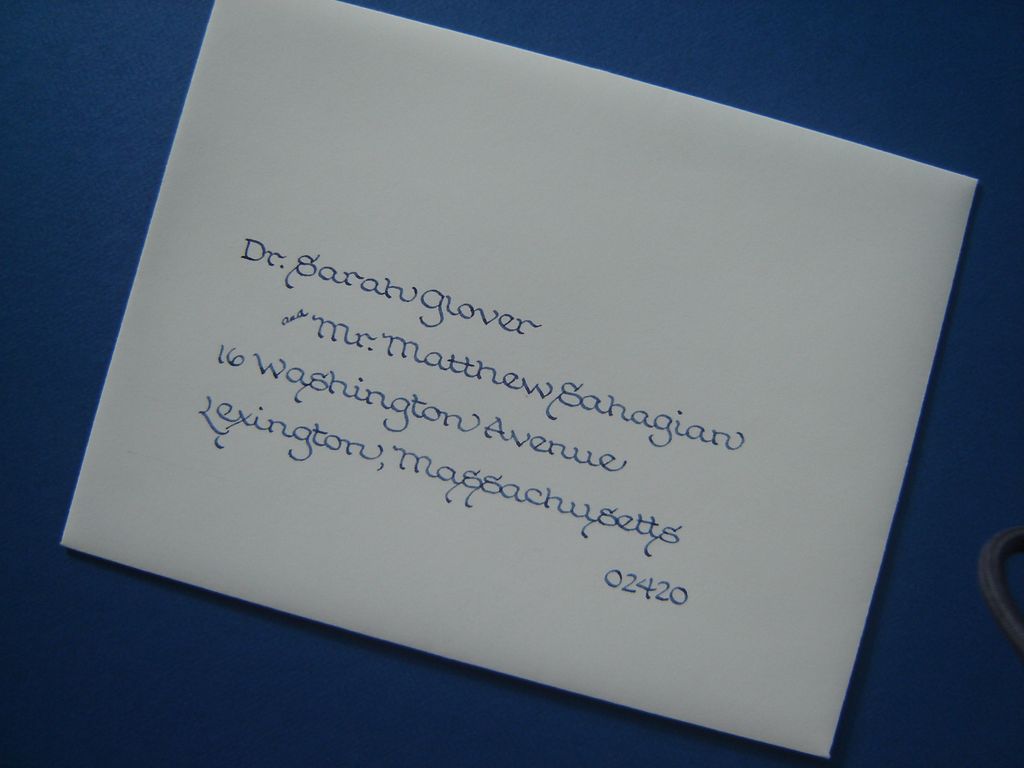 Dr. Sarah Glover
and Mr. Matthew Sahagian
16 Washington Avenue
Lexington, Massachusetts
02420